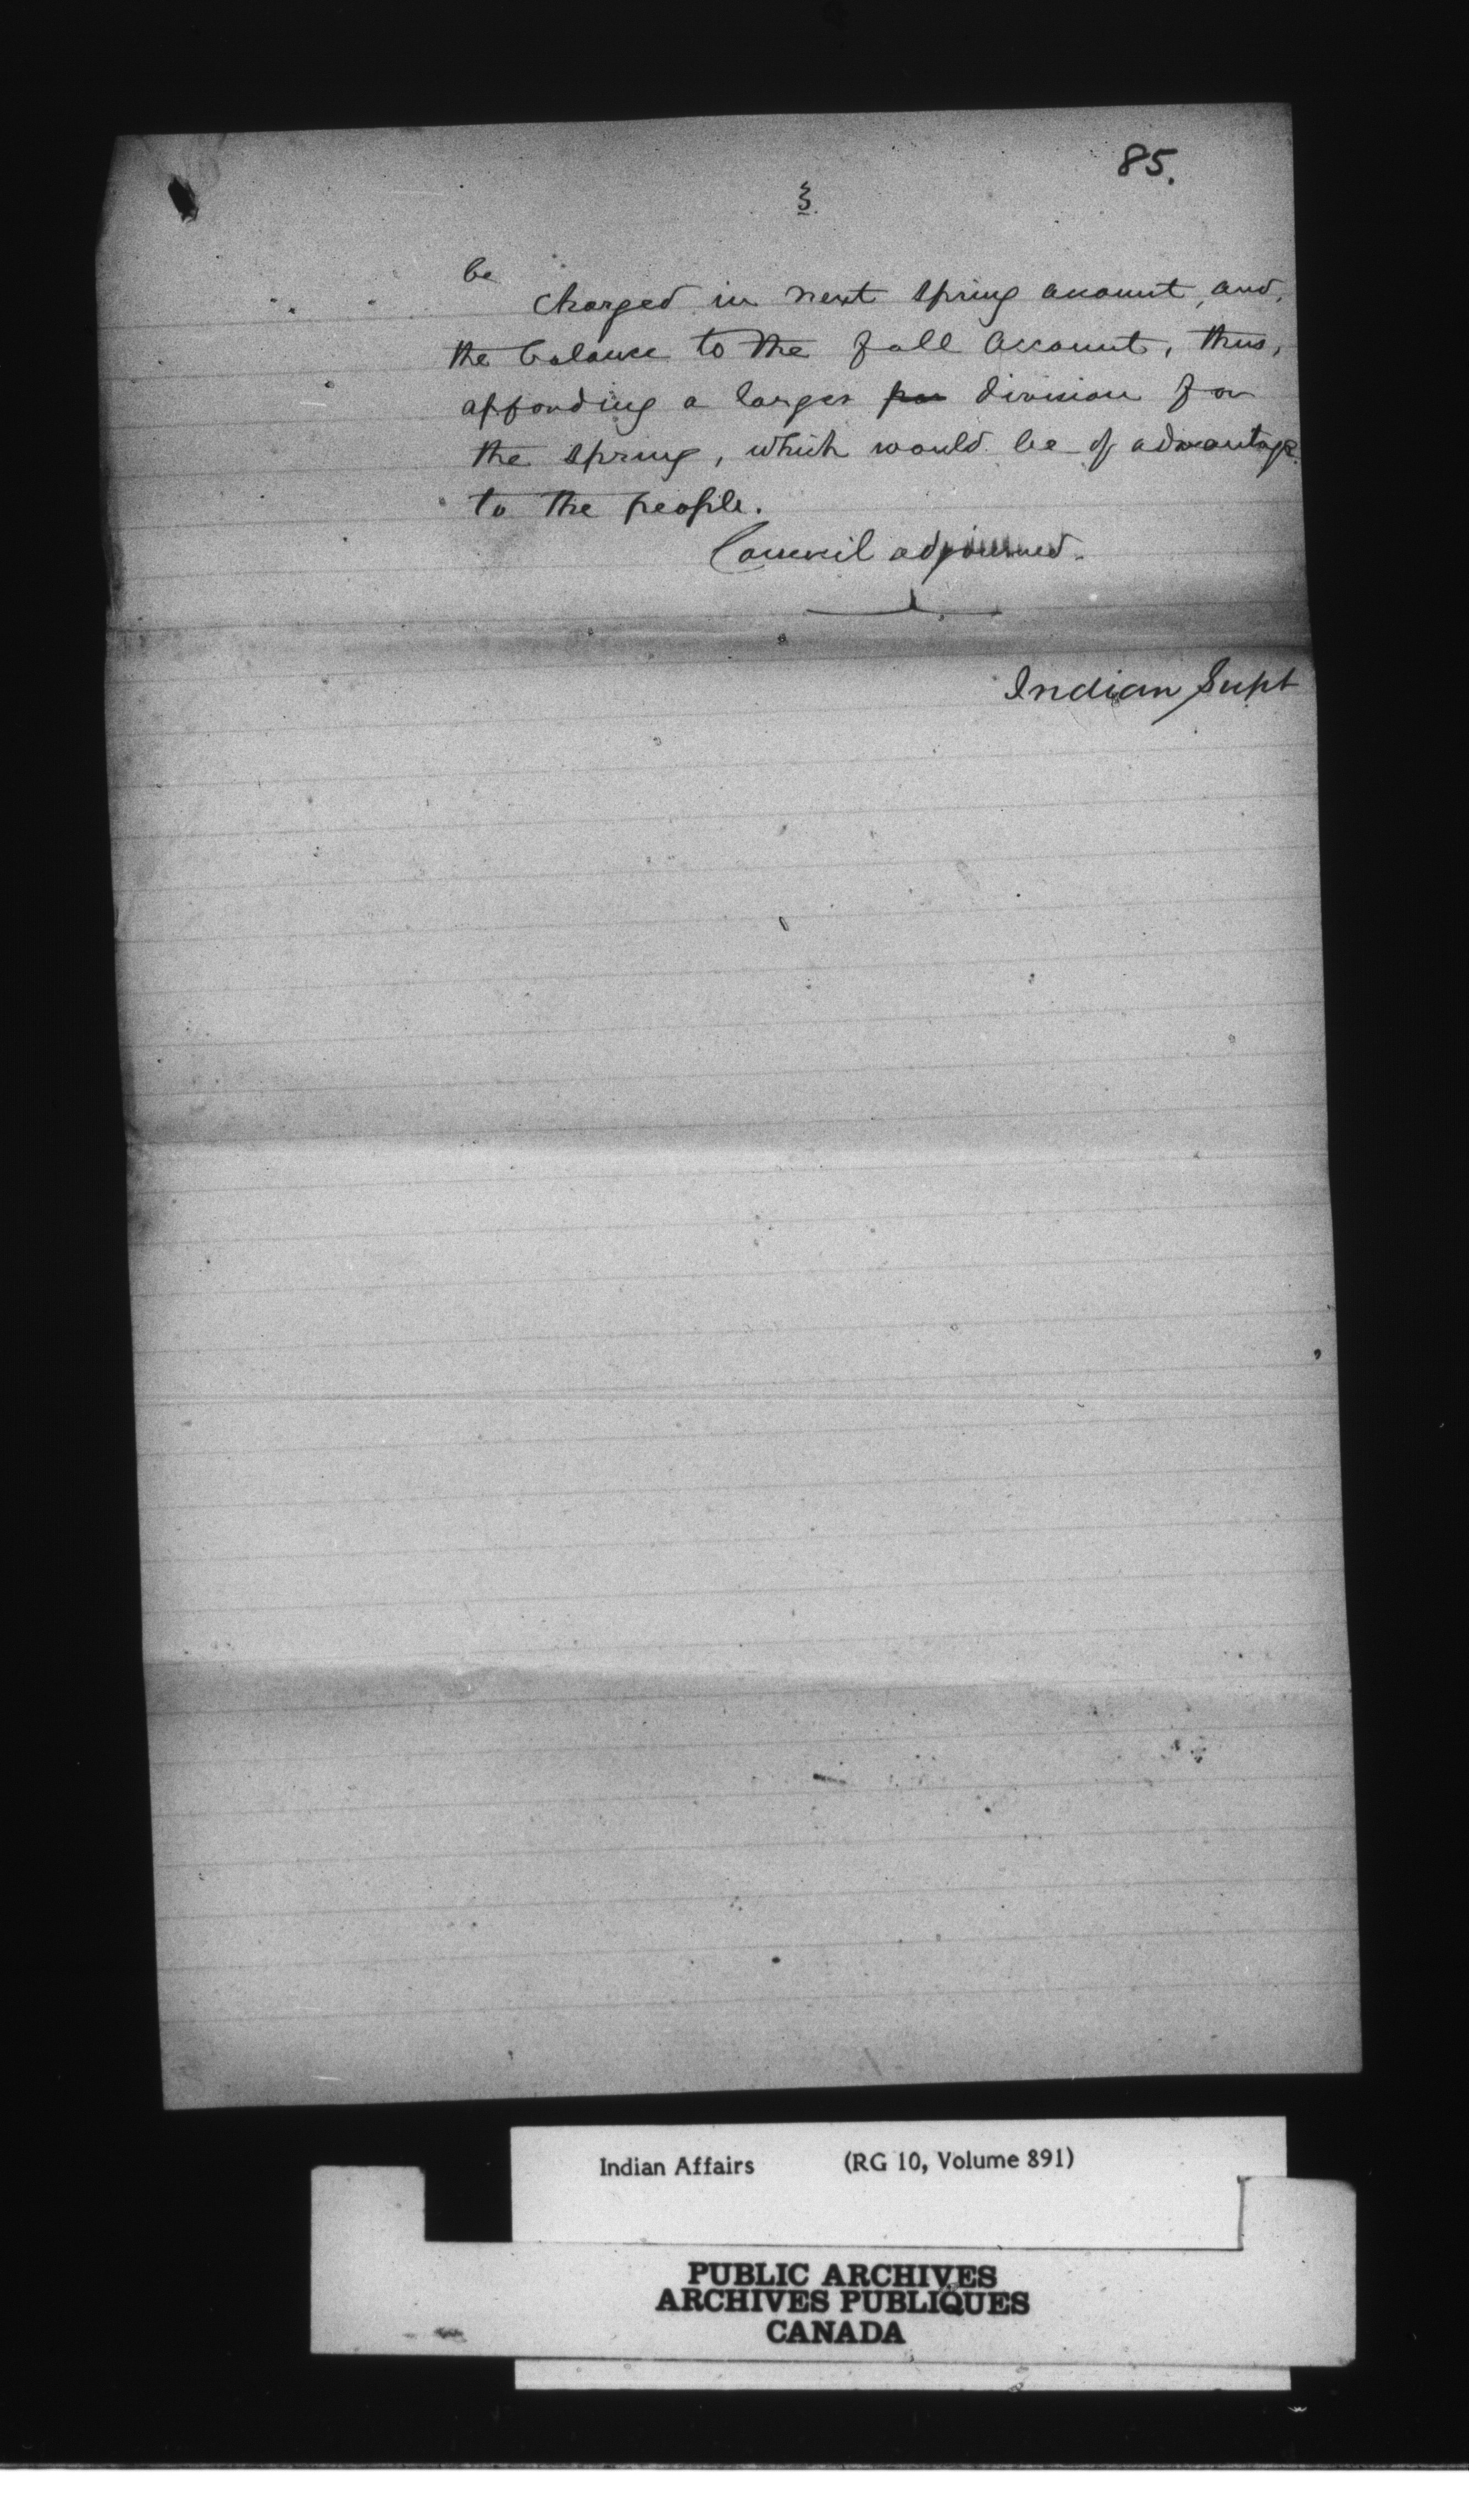 85.
3.
be
charged in next spring account, and,
the balance to the fall account, thus,
affording a larger par division for
the spring, which would be of advantage
to the people.
Council adjourned.
Indian Supt
Indian Affairs (RG 10, Volume 891)
PUBLIC ARCHIVES
ARCHIVES PUBLIQUES
CANADA